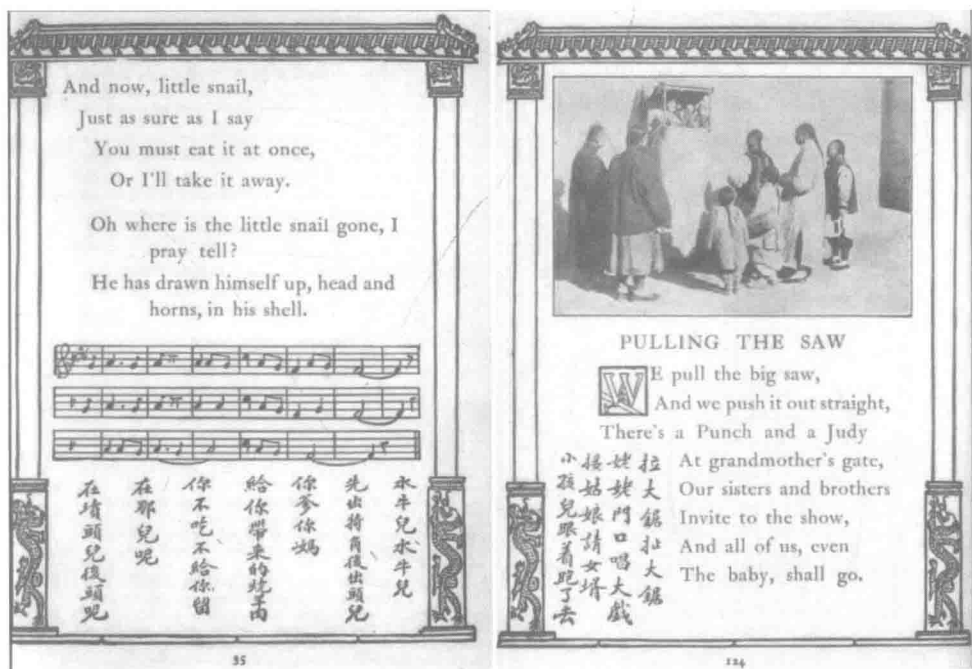 And now, little snail,
Just as sure as I say
You must eat it at once,
Or I'll take it away.
Oh where is the little snail gone, I
pray tell?
He has drawn himself up, head and
horns, in his shell.
水牛兒水牛兒
先出犄角後出頭兒
你爹你媽
給你帶來的燒羊肉
你不吃不給你留
在那兒呢
在墳頭兒後頭呢
35
PULLING THE SAW
WE pull the big saw,
And we push it out straight,
There's a Punch and a Judy
At grandmother's gate,
Our sisters and brothers
Invite to the show,
And all of us, even
The baby, shall go.
拉大鋸扯大鋸
姥姥門口唱大戲
接姑娘請女壻
小孩兒跟着跑了去
124